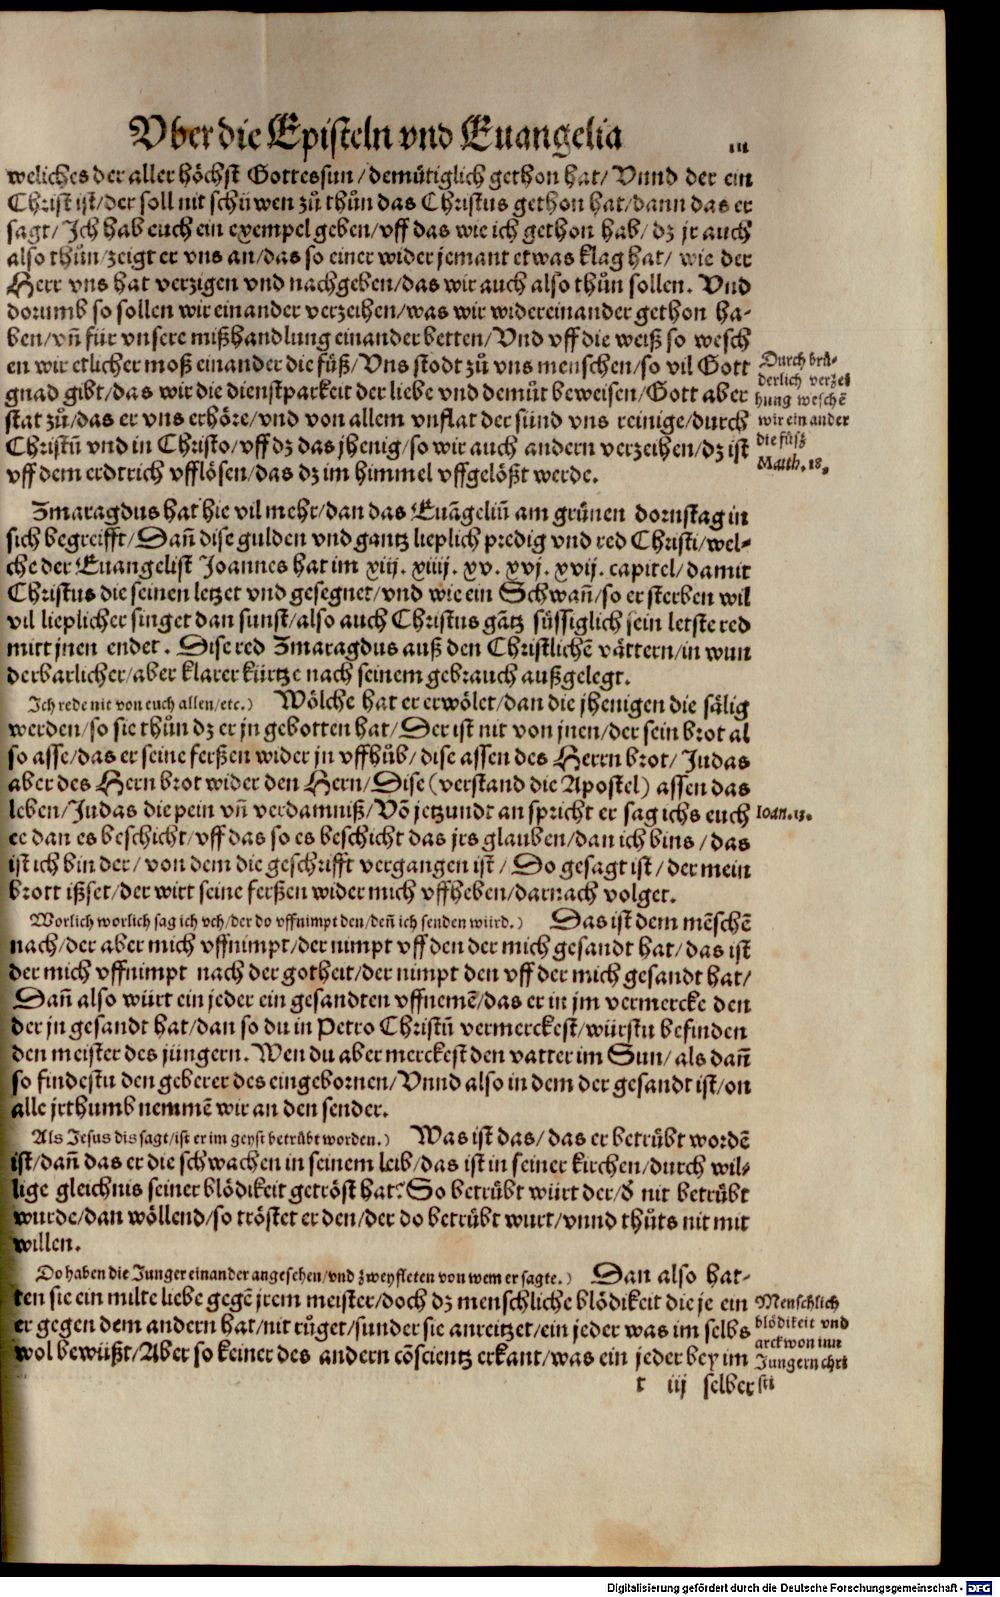 Vber die Episteln vnd Euangelia iii
weliches der aller höchst Gottes sun / demütiglich gethon hat / Vnnd der ein
Christ ist / der soll nit schüwen zů thůn das Christus gethon hat / dann das er
sagt / Ich hab euch ein exempel geben / vff das wie ich gethon hab / dz jr auch
also thůn / zeigt er vns an / das so einer wider jemant etwas klag hat / wie der
Herr vns hat verzigen vnd nachgeben / das wir auch also thůn sollen. Vnd
dorumb so sollen wir einander verzeihen / was wir widereinander gethon ha-
ben / vñ für vnsere mißhandlung einander betten / Vnd vff die weiß so wesch
en wir etlicher moß einander die füß / Vns stodt zů vns menschen / so vil Gott
gnad gibt / das wir die dienstparkeit der liebe vnd demůt beweisen / Gott aber
stat zů / das er vns erhöre / vnd von allem vnflat der sünd vns reinige / durch
Christũ vnd in Christo / vff dz das jhenig / so wir auch andern verzeihen / dz ist
vff dem erdtrich vfflösen / das dz im himmel vffgelößt werde.
Durch brü-
derlich verzei
hung weschẽ
wir ein ander
die füsz
Matth. 18.
Zmaragdus hat hie vil mehr / dan das Euãgeliũ am grünen dornstag in
sich begreifft / Dañ dise gulden vnd gantz lieplich predig vnd red Christi / wel-
che der Euangelist Joannes hat im xiij. xiiij. xv. xvj. xvij. capitel / damit
Christus die seinen letzet vnd gesegnet / vnd wie ein Schwañ / so er sterben wil
vil lieplicher singet dan sunst / also auch Christus gãtz süssiglich sein letste red
mitt jnen endet. Dise red Zmaragdus auß den Christlichẽ vättern / in wun
derbarlicher / aber klarer kürtze nach seinem gebrauch außgelegt.
Ich rede nit von euch allen / etc.) Wölche hat er erwölet / dan die jhenigen die sälig
werden / so sie thůn dz er jn gebotten hat / Der ist nit von jnen / der sein brot al
so asse / das er seine ferßen wider jn vffhůb / dise assen des Herrn brot / Judas
aber des Hern brot wider den Hern / Dise (verstand die Apostel) assen das
leben / Judas die pein vñ verdamniß / Võ jetzundt an spricht er sag ichs euch
Ioan. 13.
ee dan es beschicht / vff das so es beschicht das jrs glauben / dan ich bins / das
ist ich bin der / von dem die geschrifft vergangen ist / Do gesagt ist / der mein
brott ißset / der wirt seine ferßen wider mich vffheben / darnach volget.
Worlich worlich sag ich vch / der do vffnimpt den / deñ ich senden würd.) Das ist dem mẽschẽ
nach / der aber mich vffnimpt / der nimpt vff den der mich gesandt hat / das ist
der mich vffnimpt nach der gotheit / der nimpt den vff der mich gesandt hat /
Dañ also würt ein jeder ein gesandten vffnemẽ / das er in jm vermercke den
der jn gesandt hat / dan so du in Petro Christũ vermerckest / würstu befinden
den meister des jüngern. Wen du aber merckest den vatter im Sun / als dañ
so findestu den geberer des eingebornen / Vnnd also in dem der gesandt ist / on
alle jrthumb nemmẽ wir an den sender.
Als Jesus dis sagt / ist er im geyst betrübt worden.) Was ist das / das er betrübt wordẽ
ist / dañ das er die schwachen in seinem leib / das ist in seiner kirchen / durch wil-
lige gleichnis seiner blödikeit getröst hat? So betrübt würt der / d' nit betrübt
wurde / dan wöllend / so tröstet er den / der do betrübt wurt / vnnd thůts nit mit
willen.
Do haben die Junger einander angesehen / vnd zweyfleten von wem er sagte.) Dan also hat-
ten sie ein milte liebe gegẽ jrem meister / doch dz menschliche blödikeit die je ein
er gegen dem andern hat / nit rüget / sunder sie anreitzet / ein jeder was im selbs
wol bewüßt / Aber so keiner des andern cõscientz erkant / was ein jeder bey im
Menschlich
blödikeit vnd
arckwon inn
Jungern chri
sti
t iij selber
Digitalisierung gefördert durch die Deutsche Forschungsgemeinschaft - DFG